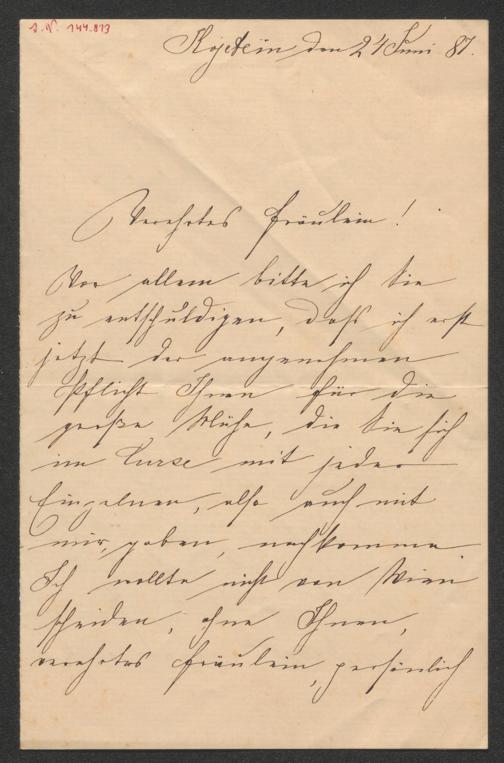 J. N. 144.873
Kojetein den 24 Juni 87.
Verehrtes Fräulein!
Vor allem bitte ich Sie
zu entschuldigen, daß ich erst
jetzt der angenehmen
Pflicht Ihnen für die
große Mühe, die Sie sich
im Curse mit jeder
Einzelnen, also auch mit
mir, gaben, nachkomme.
Ich wollte nicht von Wien
scheiden, ohne Ihnen,
verehrtes Fräulein, persönlich